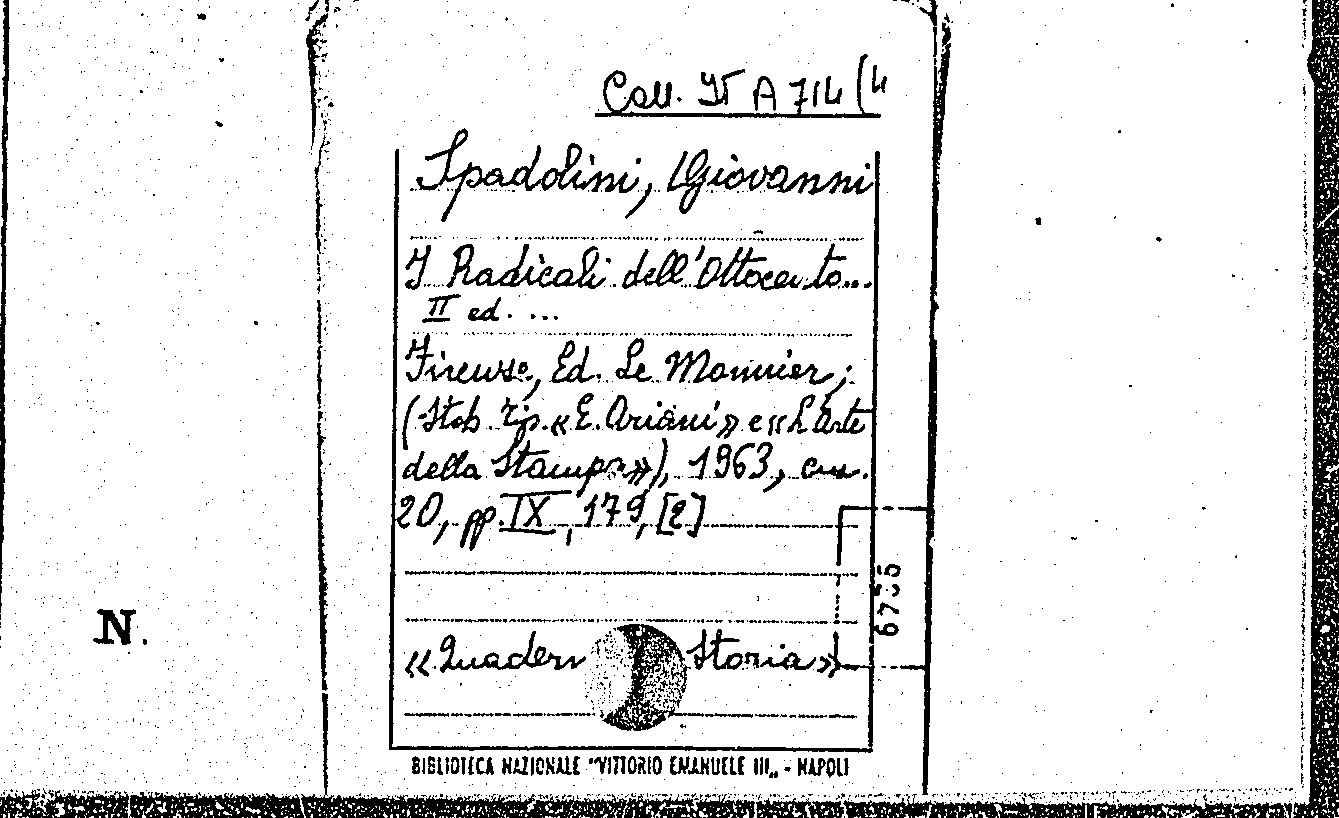 Coll. IV A 714 (4
Spadolini, Giovanni
I Radicali dell'Ottocento...
II ed. ...
Firenze, Ed. Le Monnier;
(Stab. Tip. «E. Ariani» e «L'Arte
della Stampa»), 1963, cm.
20, pp. IX, 179, [2]
«Quadern Storia»
BIBLIOTECA NAZIONALE "VITTORIO EMANUELE III„ - NAPOLI
N.